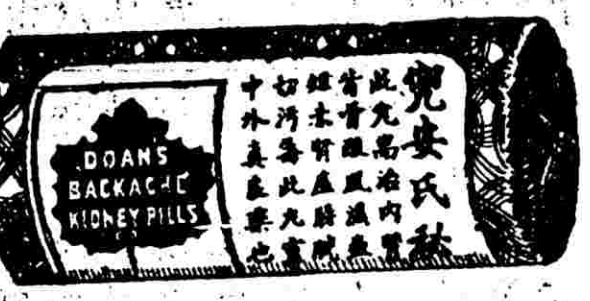 DOANS
BACKACHE
KIDNEY PILLS
兜安氏秘
此丸耑治內腎
背骨酸風濕
腎虛膀
切污毒此丸
中外真良藥也